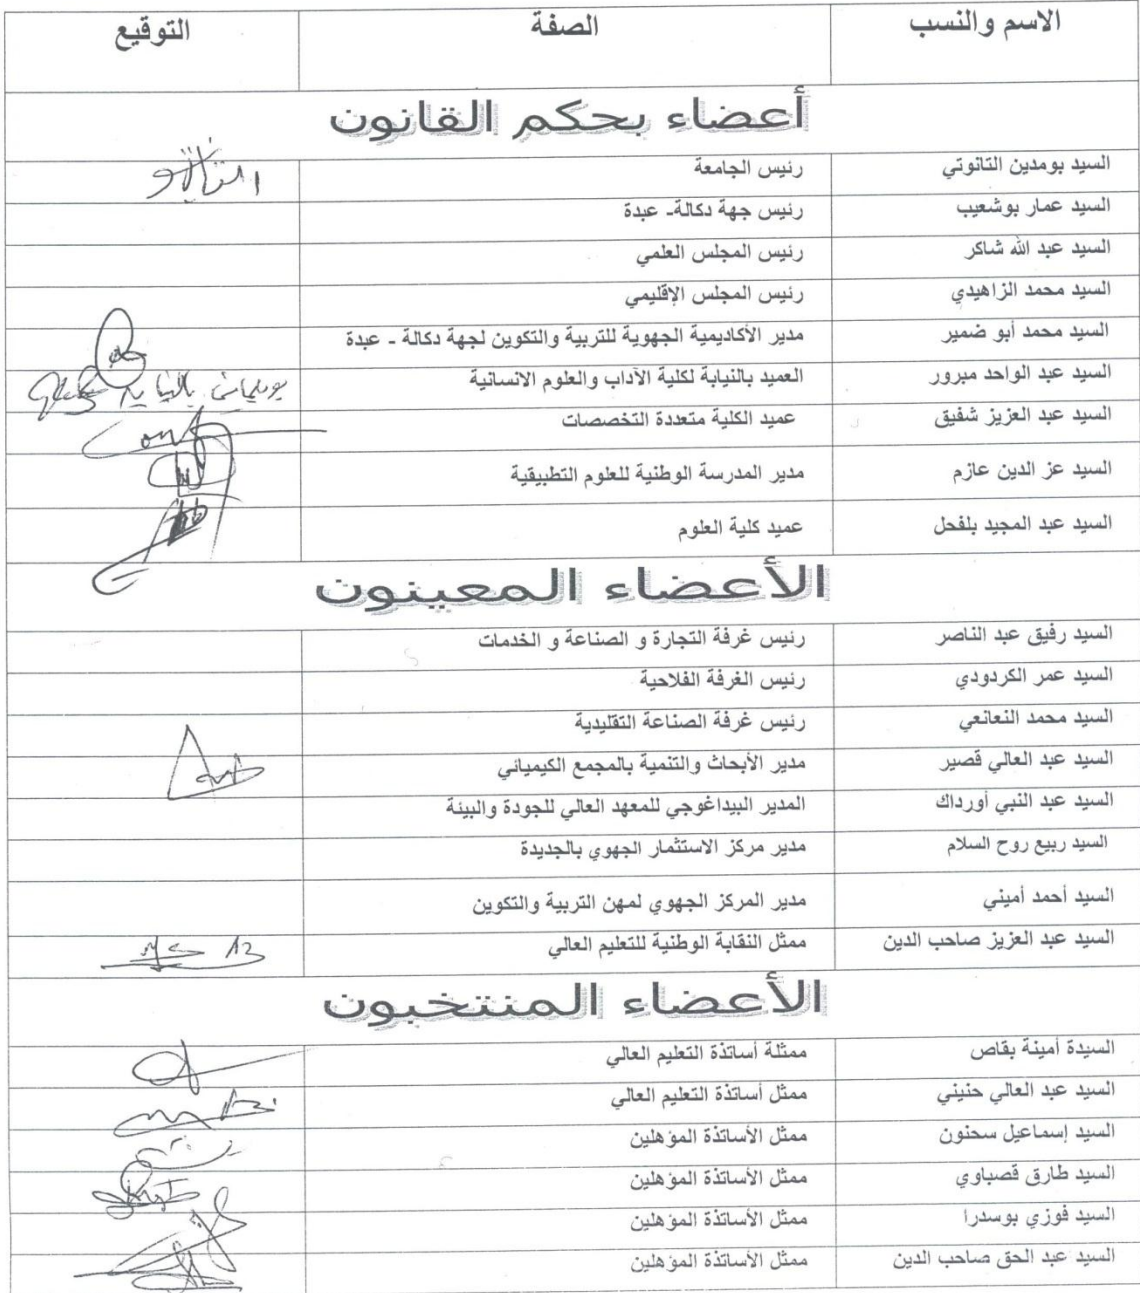 الاسم والنسب الصفة التوقيع
أعضاء بحكم القانون
السيد بومدين التانوتي رئيس الجامعة
السيد عمار بوشعيب رئيس جهة دكالة- عبدة
السيد عبد الله شاكر رئيس المجلس العلمي
السيد محمد الزاهيدي رئيس المجلس الإقليمي
السيد محمد أبو ضمير مدير الأكاديمية الجهوية للتربية والتكوين لجهة دكالة - عبدة
السيد عبد الواحد مبرور العميد بالنيابة لكلية الآداب والعلوم الانسانية
السيد عبد العزيز شفيق عميد الكلية متعددة التخصصات
السيد عز الدين عازم مدير المدرسة الوطنية للعلوم التطبيقية
السيد عبد المجيد بلفحل عميد كلية العلوم
الأعضاء المعينون
السيد رفيق عبد الناصر رئيس غرفة التجارة و الصناعة و الخدمات
السيد عمر الكردودي رئيس الغرفة الفلاحية
السيد محمد النعانعي رئيس غرفة الصناعة التقليدية
السيد عبد العالي قصير مدير الأبحاث والتنمية بالمجمع الكيميائي
السيد عبد النبي أورداك المدير البيداغوجي للمعهد العالي للجودة والبيئة
السيد ربيع روح السلام مدير مركز الاستثمار الجهوي بالجديدة
السيد أحمد أميني مدير المركز الجهوي لمهن التربية والتكوين
السيد عبد العزيز صاحب الدين ممثل النقابة الوطنية للتعليم العالي
الأعضاء المنتخبون
السيدة أمينة بقاص ممثلة أساتذة التعليم العالي
السيد عبد العالي حنيني ممثل أساتذة التعليم العالي
السيد إسماعيل سحنون ممثل الأساتذة المؤهلين
السيد طارق قصباوي ممثل الأساتذة المؤهلين
السيد فوزي بوسدرا ممثل الأساتذة المؤهلين
السيد عبد الحق صاحب الدين ممثل الأساتذة المؤهلين